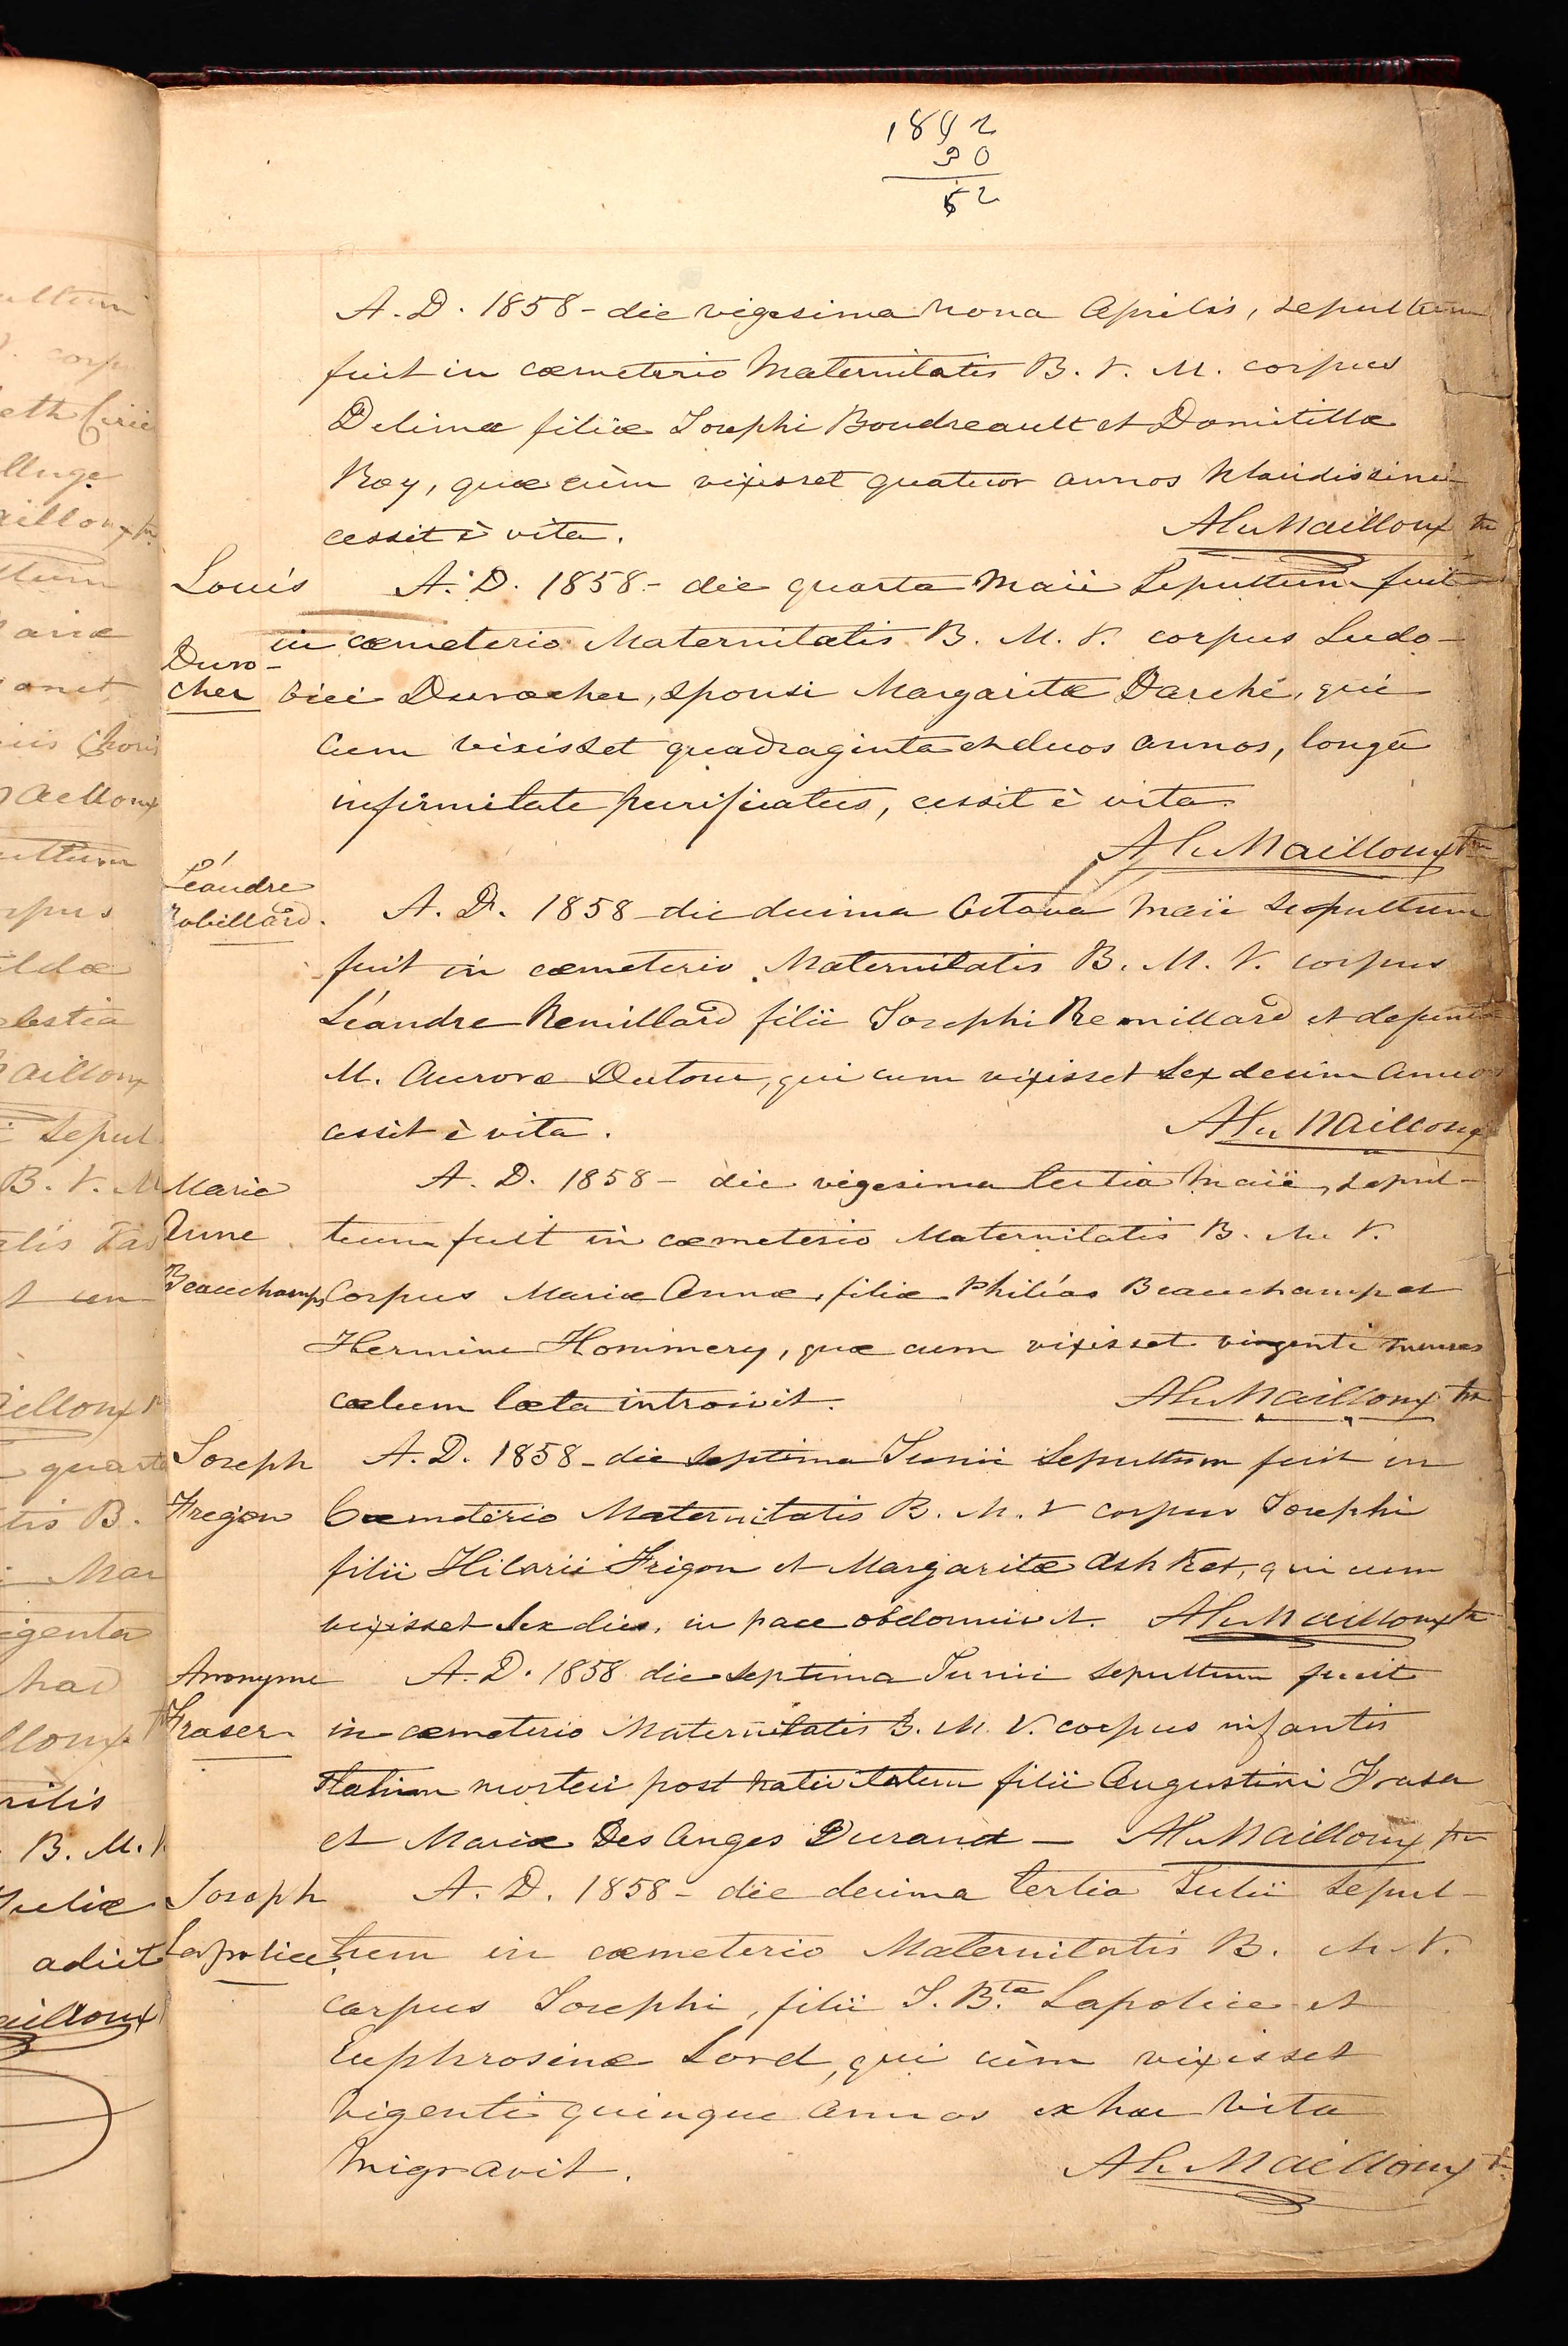 1892
30
62
A. D. 1858 - die vigesima nona Aprilis, sepultum
fuit in cæmeterio Maternitatis B. V. M. corpus
Delimæ filiæ Josephi Boudreault et Domitillæ
Roy, quæ cùm vixisset quatuor annos
cessit è vita. Alx Mailloux ptr
Louis
A. D. 1858 - die quarta Maii Sepultum fuit
Duro-
cher
in cæmeterio Maternitatis B. M. V. corpus Ludo-
vici Durocher, sponsi Margaritæ Darché, qui
Cum vixisset quadraginta et duos annos, longâ
infirmitate purificatus, cessit è vita
Alx Mailloux ptr
Léandre
Robillard.
A. D. 1858 die decima Octava Maii Sepultum
fuit in cæmeterio Maternitatis B. M. V. corpus
Léandre Remillard filii Josephi Remillard et defunctæ
M. Auroræ Dutour, qui cum vixisset Sex decim Annos
cessit è vita. Alx Mailloux
Marie
Anne
Beauchamp
A. D. 1858 - die vigesima tertia Maii, sepul-
tum fuit in cæmeterio Maternitatis B. M. V.
Corpus Mariæ Annæ, filiæ Philéas Beauchamp et
Hermine Hommery, quæ cum vixisset vingenti menses
cælum læta introivit. Alx Mailloux ptr
Joseph
Fregon
A. D. 1858 - die septima Junii Sepultum fuit in
Cæmeterio Maternitatis B. M. V corpus Josephi
filii Hilarii Frigon et Margaritæ Ashket, qui cum
vixisset Sex dies, in pace obdormivit. Alx Mailloux ptr
Anonyme
Fraser
A. D. 1858 die septima Junii sepultum fuit
in cæmeterio Maternitatis B. M. V. corpus infantis
statim mortui post nativitatem filii Augustini Fraser
et Mariæ Des Anges Durand - Alx Mailloux ptr
Joseph
Lapolice
A. D. 1858 - die decima tertia Julii Sepul-
tum in cæmeterio Maternitatis B. M. V.
corpus Josephi, filii J. B.te Lapolice et
Euphrosinæ Lord, qui cùm vixisset
vigenti quinque annos ex hac vita
migravit. Alx Mailloux ptr